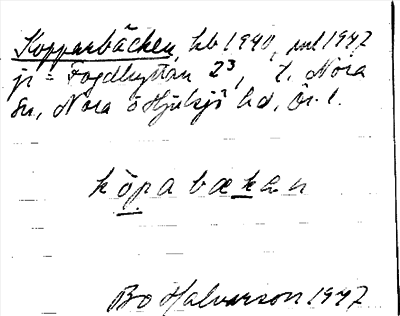 Kopparbäcken, hb 1940, uul 1947
jr = Fogdhyttan 2³, t. Nora
sn, Nora o Hjulsjö hd, Ör. l.
köpabæken
Bo Halvarson 1947